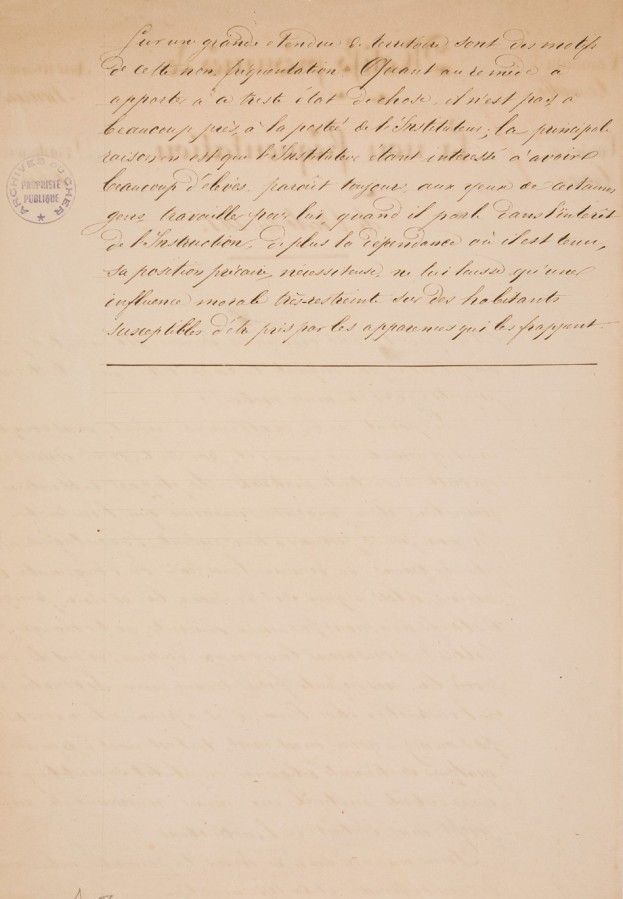 sur une grande étendue de territoire sont des motifs
de cette non fréquentation. Quant au remède à
apporter à ce triste état de chose, il n'est pas, à
beaucoup près, à la portée de l'Instituteur; la principale
raison, c'est que l'Instituteur étant intéressé à avoir
beaucoup d'élèves, paraît toujours, aux yeux de certaines
gens, travailler pour lui, quand il parle dans l'intérêt
de l'Instruction. De plus la dépendance où il est tenu,
sa position précaire, nécessiteuse ne lui laisse qu'une
influence morale très-restreinte sur des habitants
susceptibles d'être pris par les apparences qui les frappent.
ARCHIVES DU CHER
PROPRIÉTÉ
PUBLIQUE